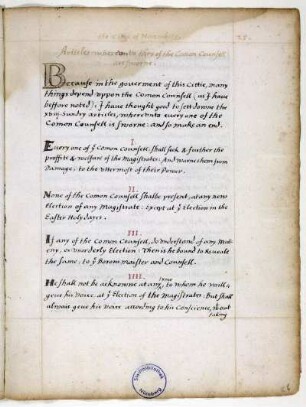 the Citty of Nurenberg
Articles whereunto they of the Comon Counsell
are sworne.
Because in the goverment of this Cittie, many
things depend uppon the Comon Counsell, as I have
beffore noted; I have thought good to sett downe the
sundry Articles, whereunto every one of the
Comon Counsell is sworne: and so make an end.
I.
Every one of ye Comon Counsell shall seek & further the
proffitt & welfare of the Magistrates; And warne them from
Damage; to the uttermost of their Power.
II.
None of the Comon Counsell shalbe present, at any new
Election of any Magistrate: Except at ye Election in the
Easter Holydayes.
III.
If any of the Comon Counsell, do understand of any Mutiny,
or, unorderly Election: Then is he bound to Reveale
the same, to ye Borowmaister and Counsell.
IIII.
He shall not be acknowne at any time, to whom he will
geve his Voice, at ye Election of the Magistrates: But shall
alwaies geve his Voice according to his Conscience, without
taking
Stadtbibliothek
Nürnberg